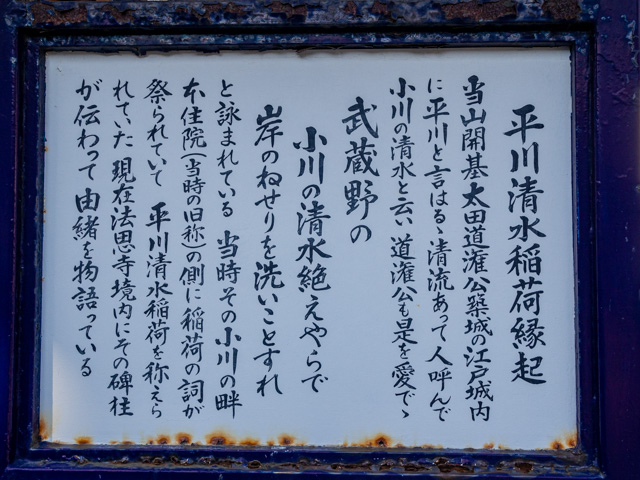 平川清水稲荷縁起
当山開基太田道潅公築城の江戸城内
に平川と言はるゝ清流あって人呼んで
小川の清水と云い道潅公も是を愛でゝ
武蔵野の
小川の清水絶えやらで
岸のねせりを洗いことすれ
と詠まれている 当時その小川の畔
本住院(当時の旧称)の側に稲荷の詞が
祭られていて 平川清水稲荷を称えら
れていた 現在法恩寺境内にその碑柱
が伝わって由緒を物語っている